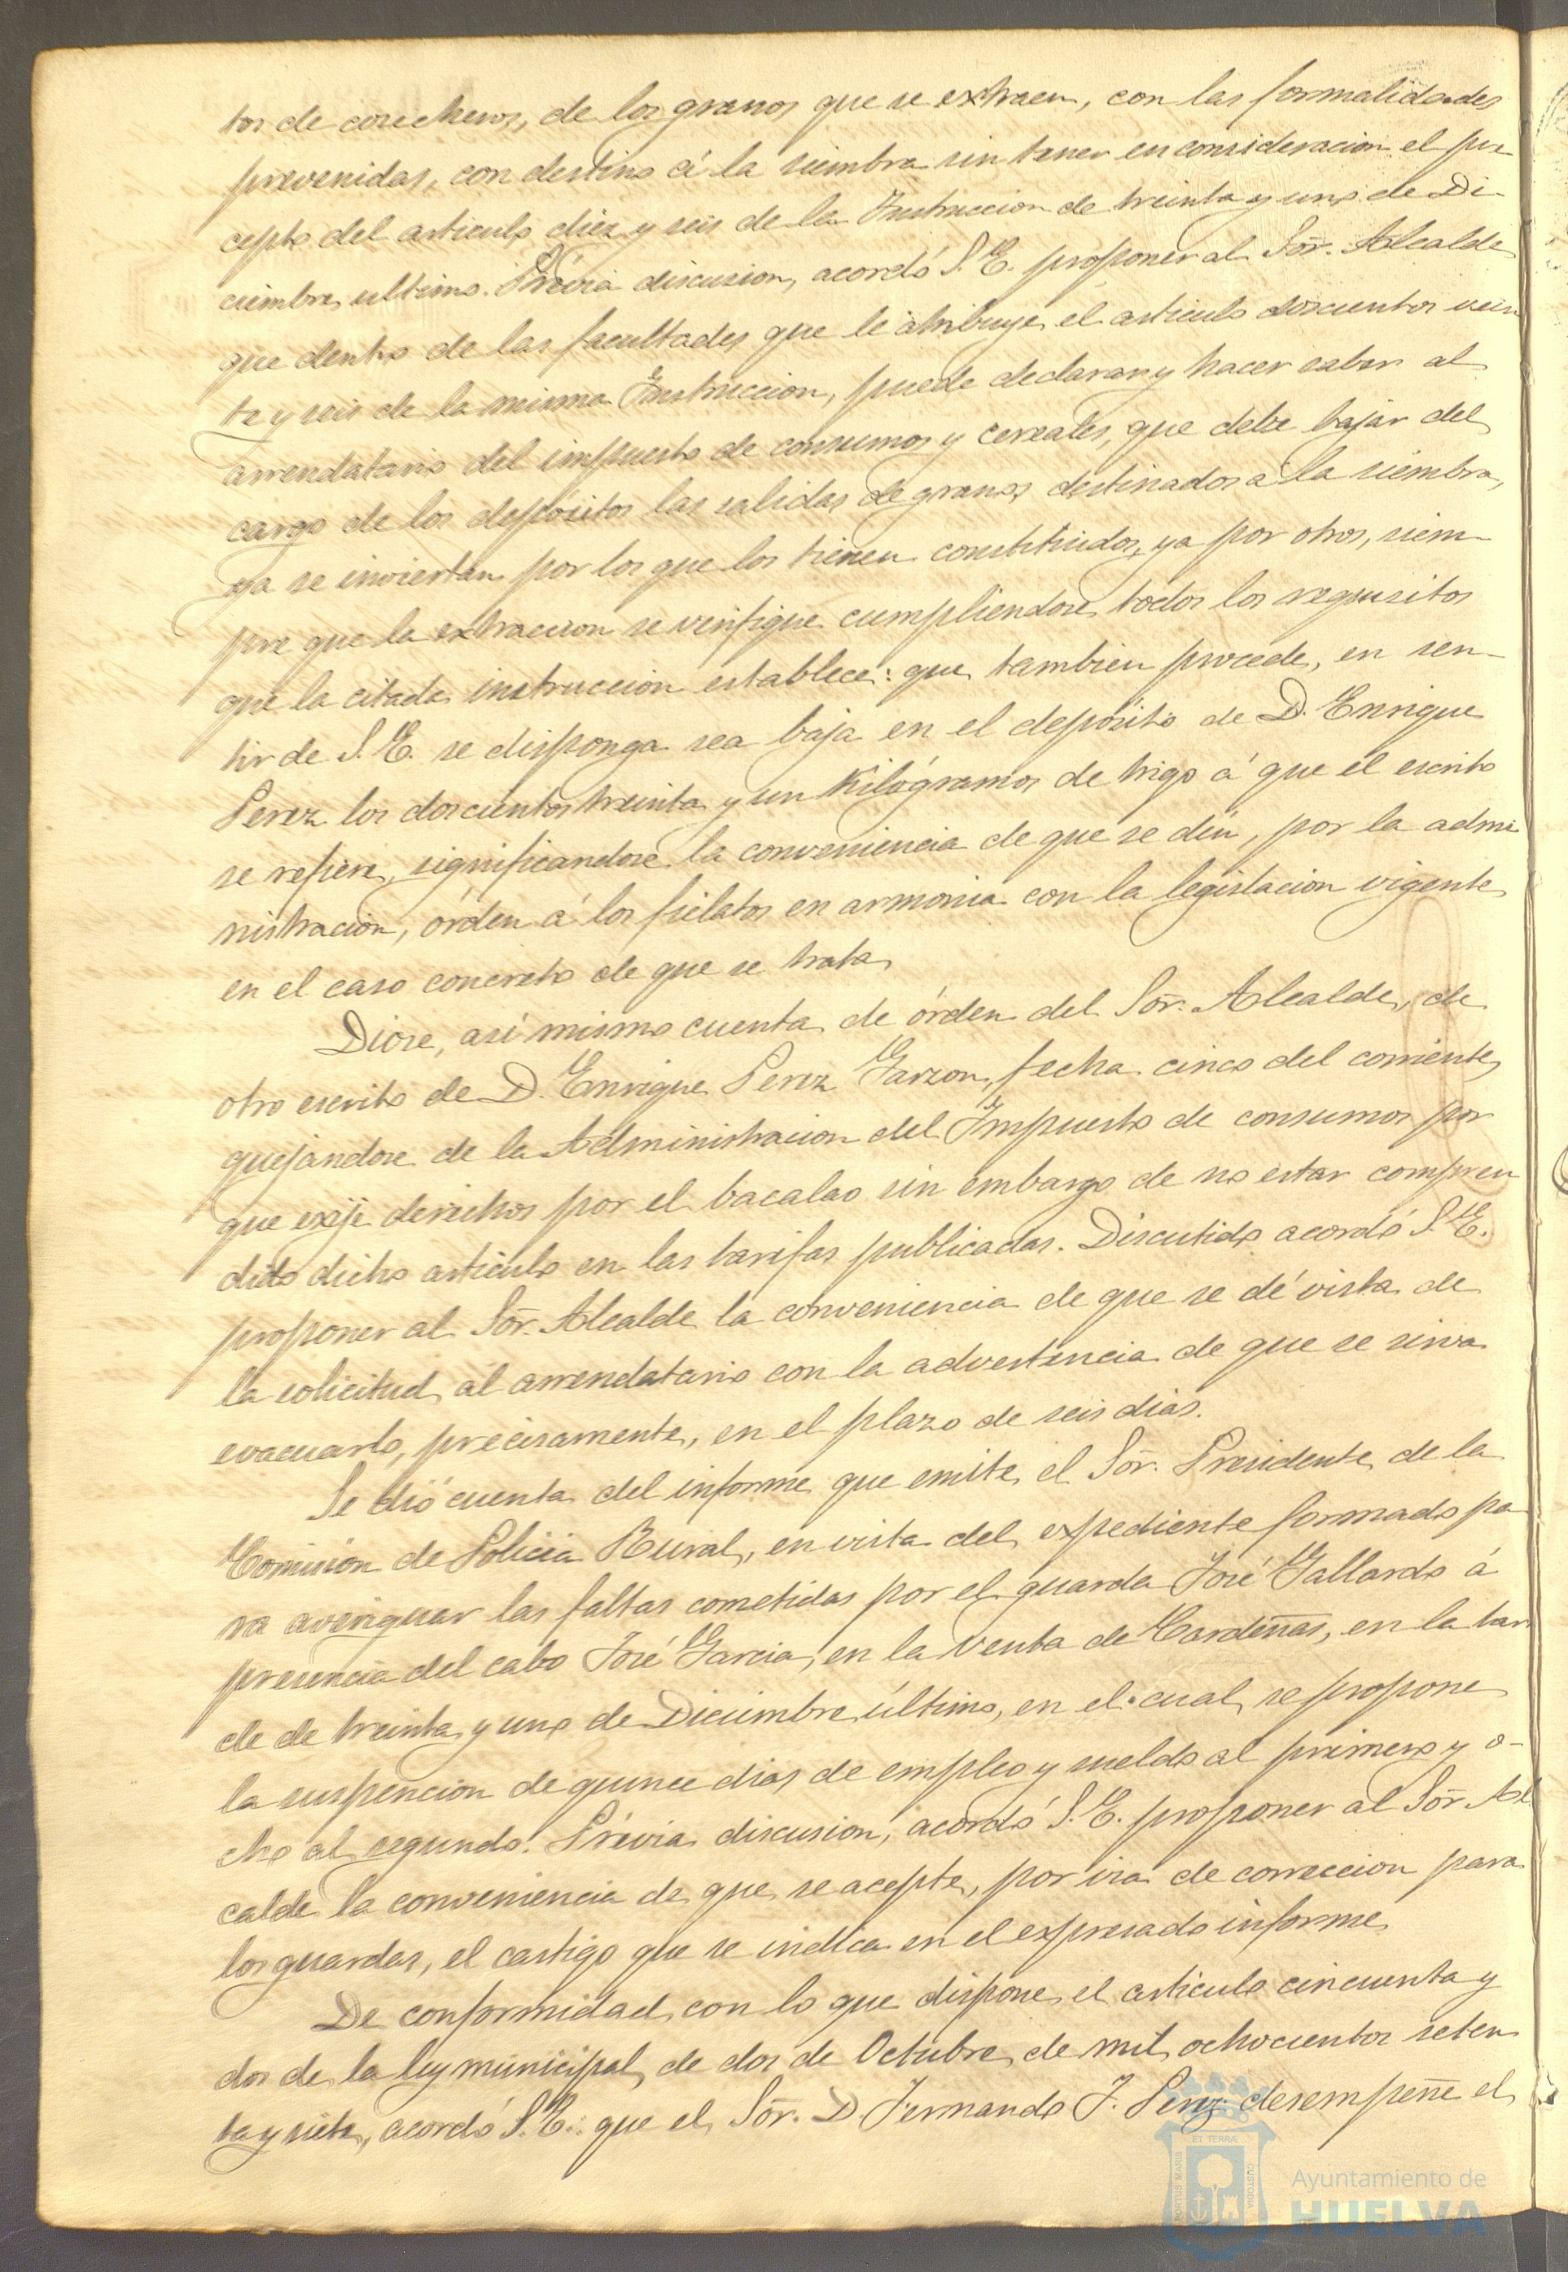 tos de cosecheros, de los granos que se extraen, con las formalidades
prevenidas, con destino á la siembra sin tener en consideracion el pre-
cepto del articulo diez y seis de la Instruccion de treinta y uno de Di-
ciembre ultimo. Prévia discusion, acordó S. E. proponer al Sor. Alcalde
que dentro de las facultades que le atribuye el articulo doscientos vein
te y seis de la misma Instruccion, puede declarar y hacer saber al
arrendatario del impuesto de consumos y cereales, que debe bajar del
cargo de los depósitos las salidas de granos destinados á la siembra,
ya se inviertan por los que los tienen constituidos, ya por otros, siem-
pre que la extraccion se verifique cumpliendose todos los requisitos
que la citada instruccion establece: que tambien procede, en sen-
tir de S. E. se disponga sea baja en el depósito de D. Enrique
Perez los doscientos treinta y un Kilógramos de trigo á que el escrito
se refiere, significandose la conveniencia de que se dén, por la admi
nistracion, órden á los fielatos en armonia con la legislacion vigente
en el caso concreto de que se trata
Diose, asi mismo cuenta de órden del Sor. Alcalde, de
otro escrito de D. Enrique Perez Garzon, fecha cinco del corriente,
quejandose de la Administracion del Impuesto de consumos por
que exije derechos por el bacalao sin embargo de no estar compren
dido dicho articulo en las tarifas publicadas. Discutido acordó S. E.
proponer al Sor. Alcalde la conveniencia de que se dé vista de
la solicitud al arrendatario con la advertencia de que se sirva
evacuarlo, precisamente, en el plazo de seis dias.
Se dió cuenta del informe que emite el Sor. Presidente de la
Comision de Policia Rural, en vista del expediente formado pa
ra averiguar las faltas cometidas por el guarda José Gallardo á
presencia del cabo José Garcia, en la venta de Cardeñas, en la tar
de de treinta y uno de Diciembre último, en el cual se propone
la suspencion de quince dias de empleo y sueldo al primero y o-
cho al segundo. Prévia discusion, acordó S. E. proponer al Sor Al
calde la conveniencia de que se acepte, por via de correccion para
los guardas, el castigo que se indica en el expresado informe.
De conformidad con lo que dispone el articulo cincuenta y
dos de la ley municipal, de dos de Octubre de mil ochocientos seten
ta y siete, acordó S. E.: que el Sor. D Fernando J. Perez desempeñe el
PORTUS MARIS ET TERRÆ CUSTODIA
Ayuntamiento de
HUELVA